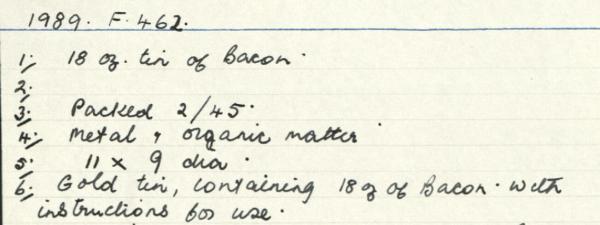 1989. F. 462.
1; 18 oz. tin of Bacon.
2.
3; Packed 2/45.
4; Metal & organic matter.
5; 11 x 9 dia.
6; Gold tin, containing 18 oz of Bacon. With
instructions for use.